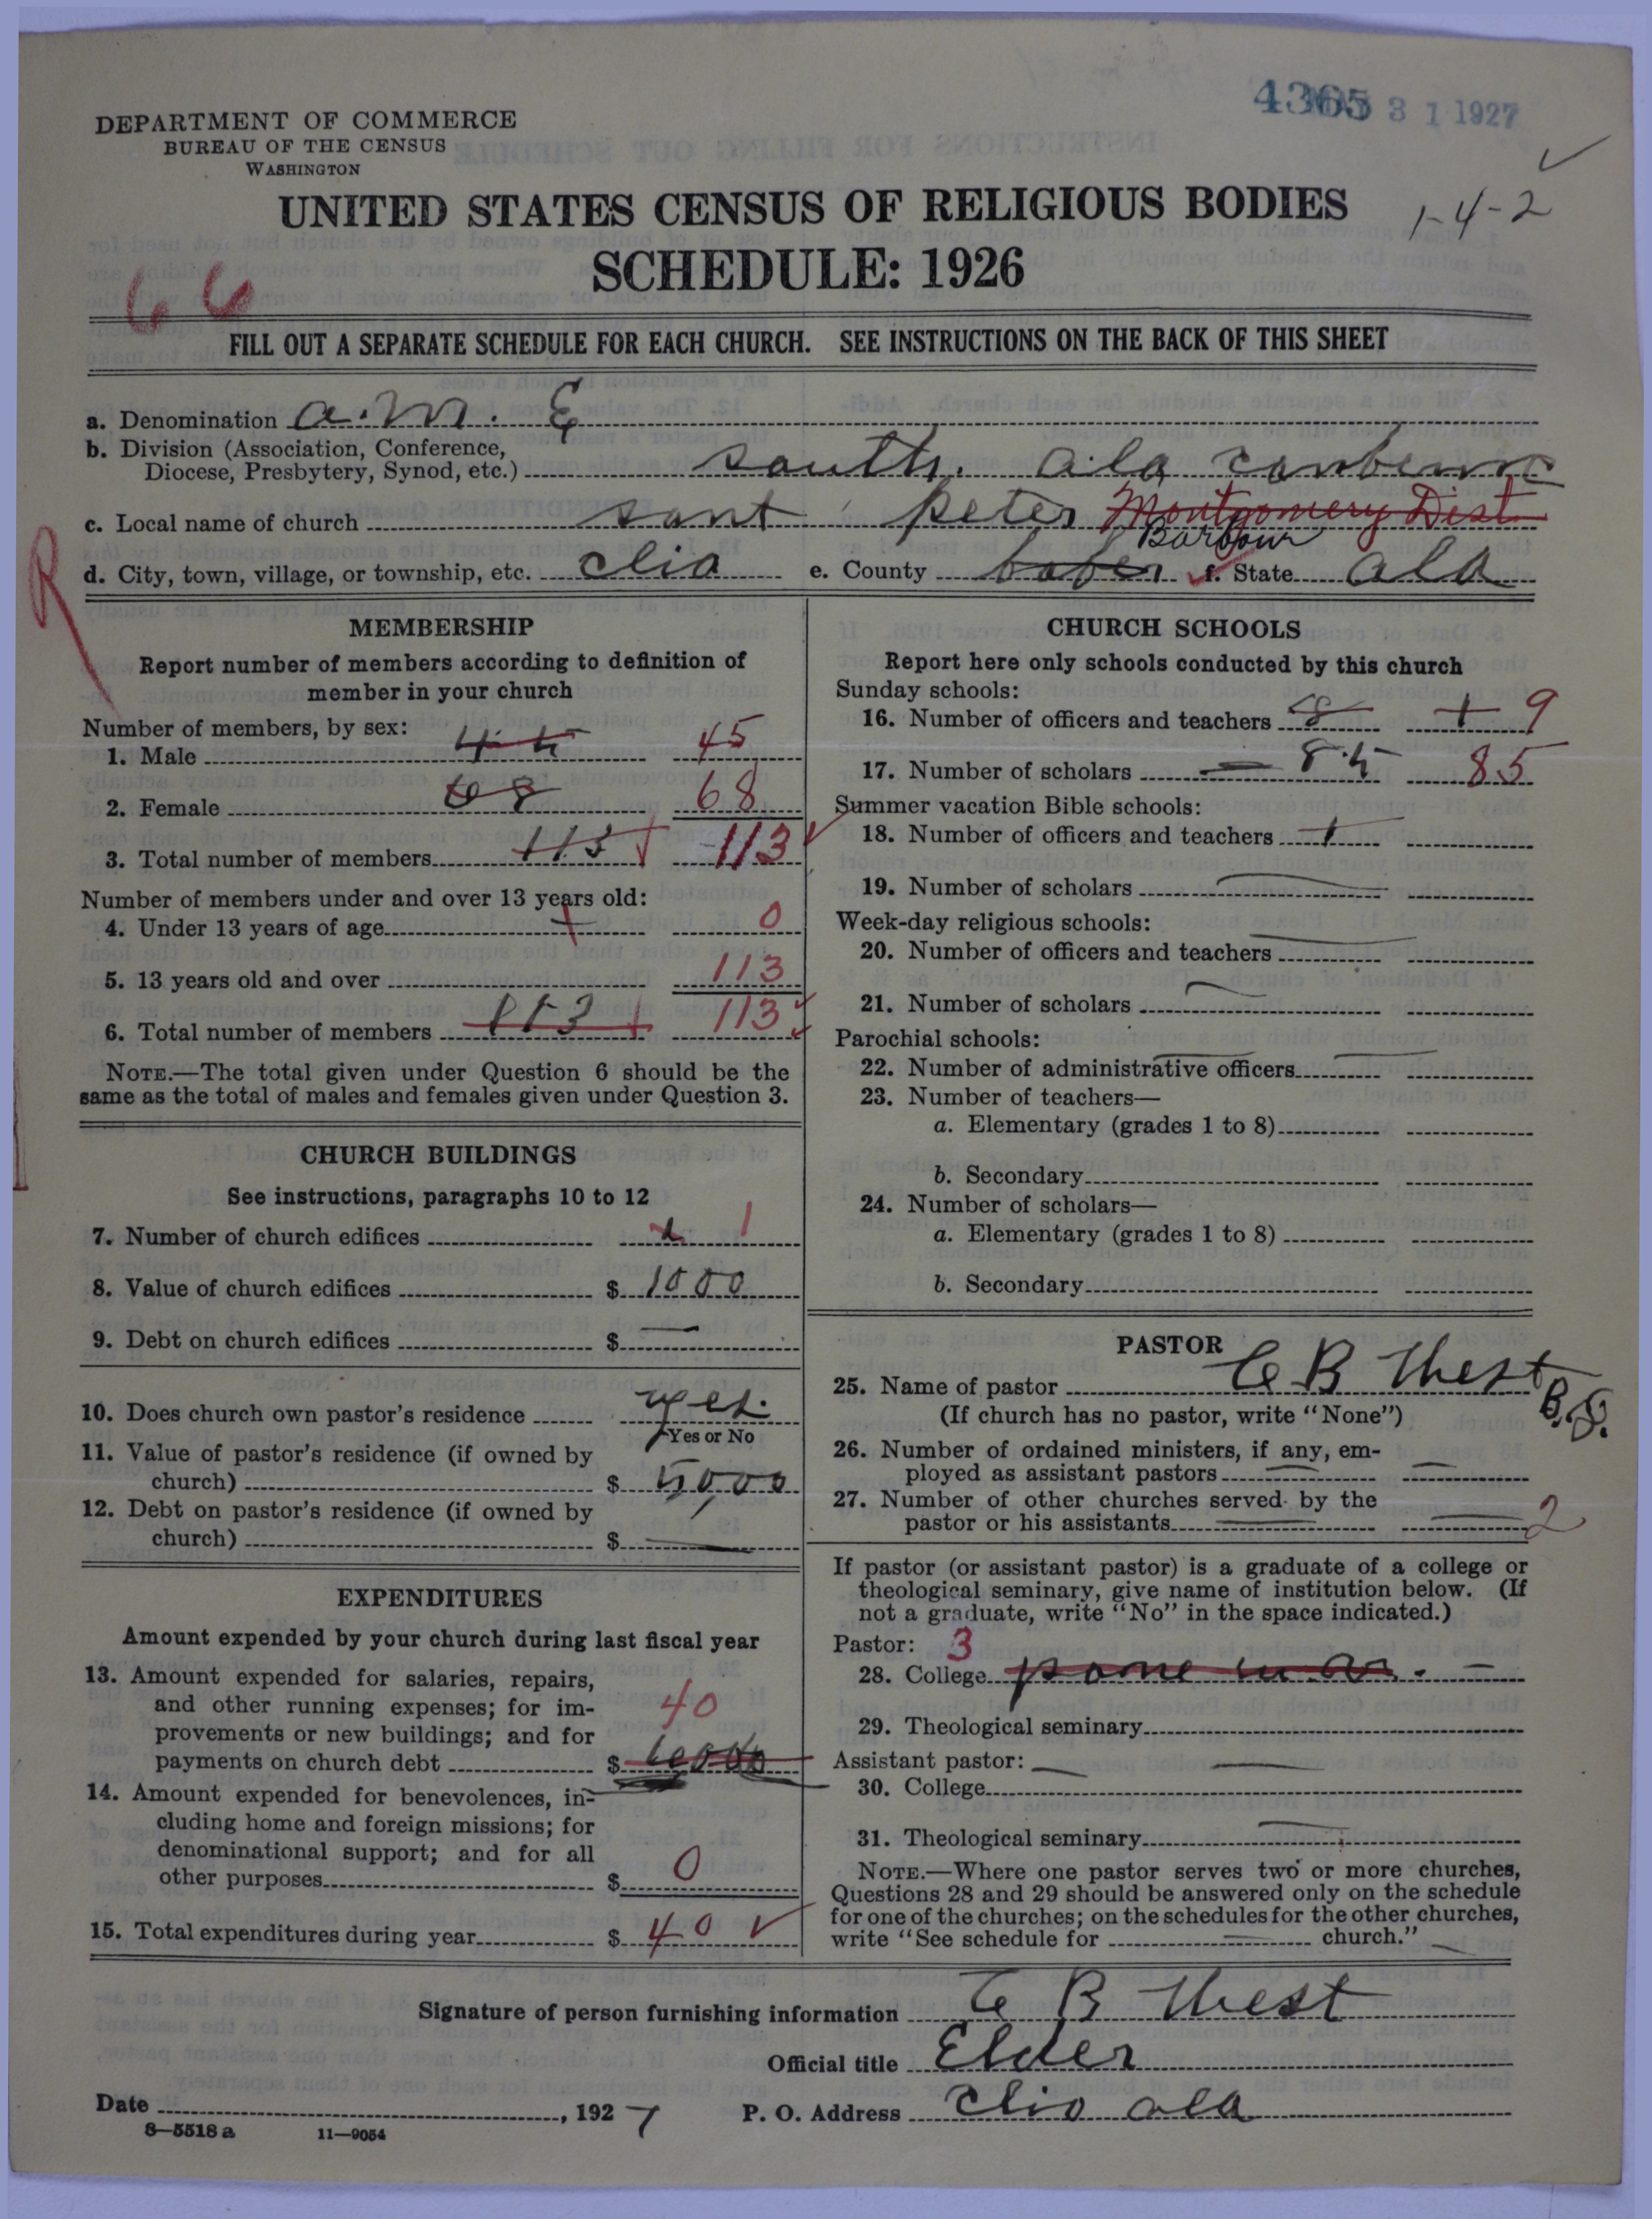 4365 31 1927
DEPARTMENT OF COMMERCE
BUREAU OF THE CENSUS
WASHINGTON
UNITED STATES CENSUS OF RELIGIOUS BODIES
1-4-2
SCHEDULE: 1926
66
FILL OUT A SEPARATE SCHEDULE FOR EACH CHURCH. SEE INSTRUCTIONS ON THE BACK OF THIS SHEET
a. Denomination a. m. E
b. Division (Association, Conference,
Diocese, Presbytery, Synod, etc.) south. ala
c. Local name of church sant peter Montgomery Dist
Barbour
d. City, town, village, or township, etc. clio e. County f. State ala
R
MEMBERSHIP
Report number of members according to definition of
member in your church
Number of members, by sex:
1. Male 45 45
2. Female 68 68
3. Total number of members 113 113
Number of members under and over 13 years old:
4. Under 13 years of age 0
5. 13 years old and over 113
6. Total number of members 113 113
NOTE.—The total given under Question 6 should be the
same as the total of males and females given under Question 3.
CHURCH BUILDINGS
See instructions, paragraphs 10 to 12
7. Number of church edifices 1
8. Value of church edifices $ 1000
9. Debt on church edifices $ —
10. Does church own pastor's residence yes.
Yes or No
11. Value of pastor's residence (if owned by
church) $ 50,00
12. Debt on pastor's residence (if owned by
church) $ —
EXPENDITURES
Amount expended by your church during last fiscal year
13. Amount expended for salaries, repairs,
and other running expenses; for im-
provements or new buildings; and for
payments on church debt $ 40
14. Amount expended for benevolences, in-
cluding home and foreign missions; for
denominational support; and for all
other purposes $ 0
15. Total expenditures during year $ 40
CHURCH SCHOOLS
Report here only schools conducted by this church
Sunday schools:
16. Number of officers and teachers 8 + 9
17. Number of scholars 85 85
Summer vacation Bible schools:
18. Number of officers and teachers
19. Number of scholars —
Week-day religious schools:
20. Number of officers and teachers —
21. Number of scholars —
Parochial schools:
22. Number of administrative officers
23. Number of teachers—
a. Elementary (grades 1 to 8)
b. Secondary
24. Number of scholars—
a. Elementary (grades 1 to 8)
b. Secondary
PASTOR
25. Name of pastor C B West
B.D.
(If church has no pastor, write "None")
26. Number of ordained ministers, if any, em-
ployed as assistant pastors — —
27. Number of other churches served by the
pastor or his assistants — — 2
If pastor (or assistant pastor) is a graduate of a college or
theological seminary, give name of institution below. (If
not a graduate, write "No" in the space indicated.)
Pastor: 3
28. College
29. Theological seminary
Assistant pastor: —
30. College
31. Theological seminary —
NOTE.—Where one pastor serves two or more churches,
Questions 28 and 29 should be answered only on the schedule
for one of the churches; on the schedules for the other churches,
write "See schedule for — church."
Signature of person furnishing information C B West
Official title Elder
Date , 1927 P. O. Address Clio ala
8—5518 a 11—9054